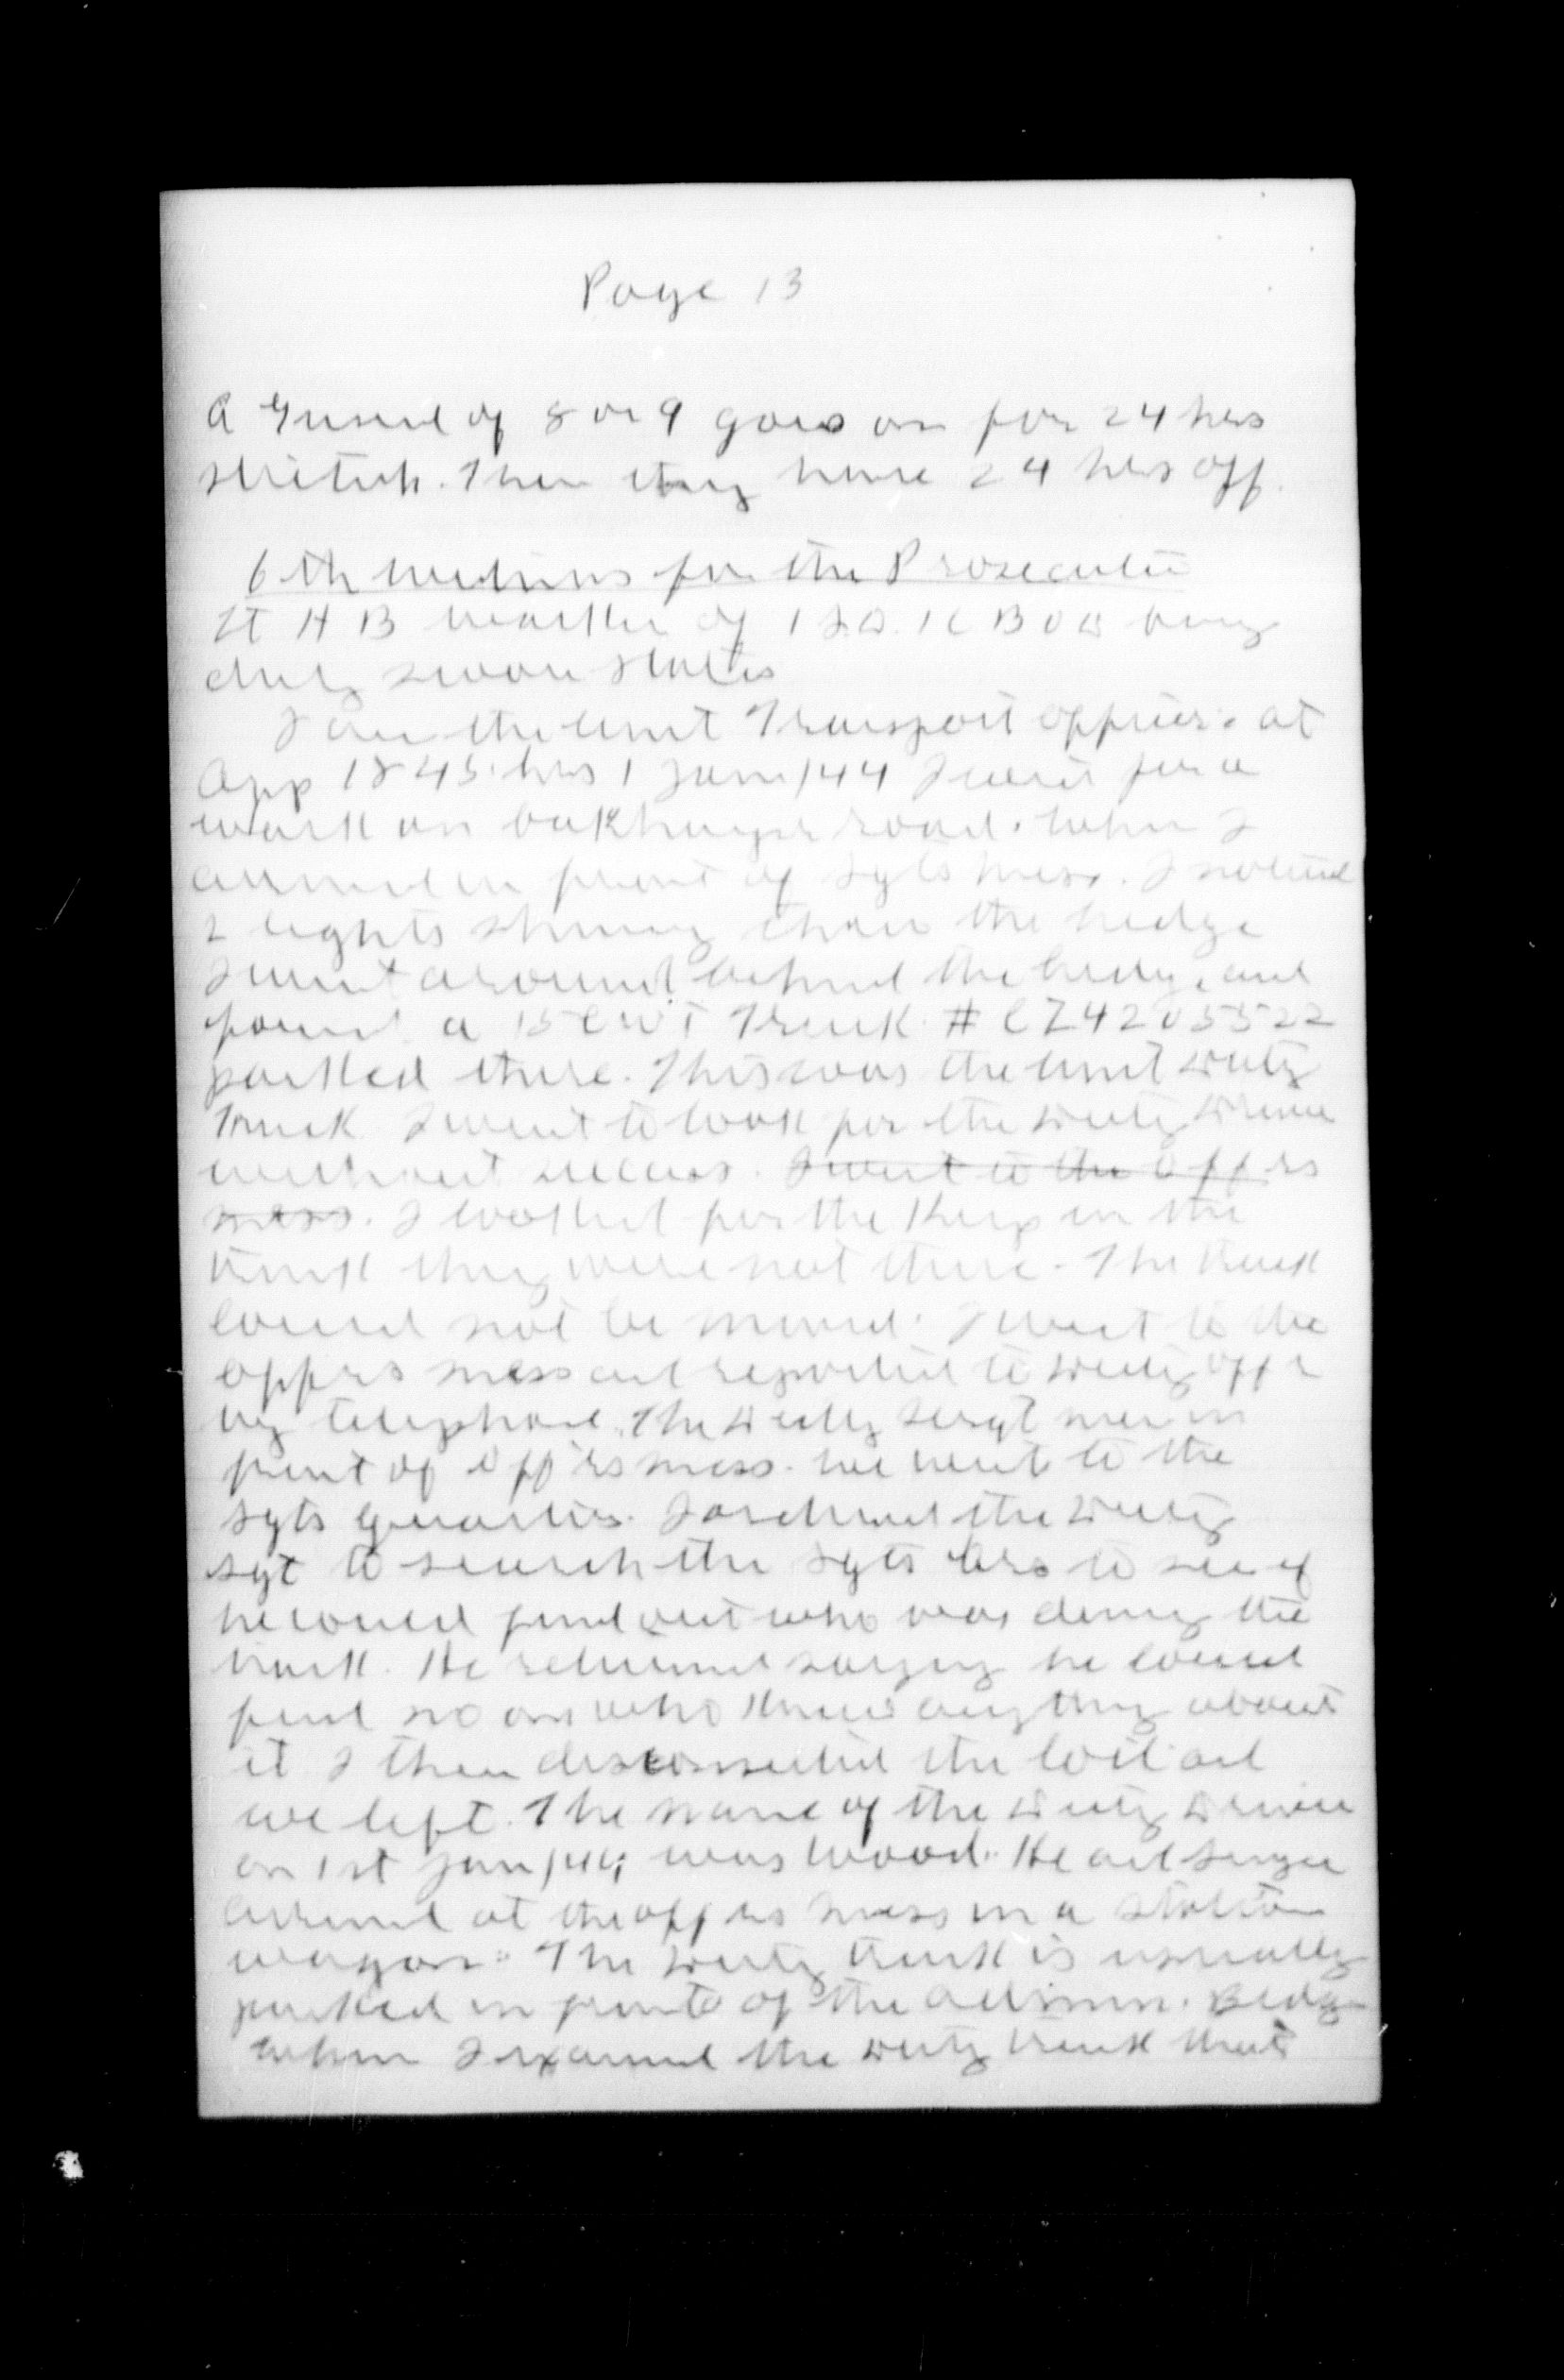 Page 13
A Guard of 8 or 9 goes on for 24 hrs
stretch. Then they have 24 hrs off.
6th witness for the Prosecution
Lt H B of 1 being
duly sworn states
I am the unit Transport officer. at
App 1845 hrs 1 Jan/44 I went for a
walk on road. When I
arrived in front of Sgts mess. I noticed
2 lights shining thru the hedge
I went around behind the hedge and
found a 15 CWT Truck # CZ4205522
parked there. This was the unit Duty
Truck I went to look for the Duty Driver
without success. I went to the Offrs
mess. I looked for the Keys in the
truck they were not there. The truck
could not be moved. I went to the
offrs mess and reported to Duty offr
by telephone. The Duty Sergt met me in
front of Offrs mess. we went to the
Sgts Quarters. I ordered the Duty
Sgt to search the Sgts Qrs to see if
he could find out who was driving the
truck. He returned saying he could
find no one who knew anything about
it I then disconnected the coil and
we left. The name of the Duty Driver
on 1st Jan/44 was Wood. He and
arrived at the offrs mess in a station
wagon. The Duty truck is usually
parked in front of the Admin. Bldg
when I examined the Duty truck that